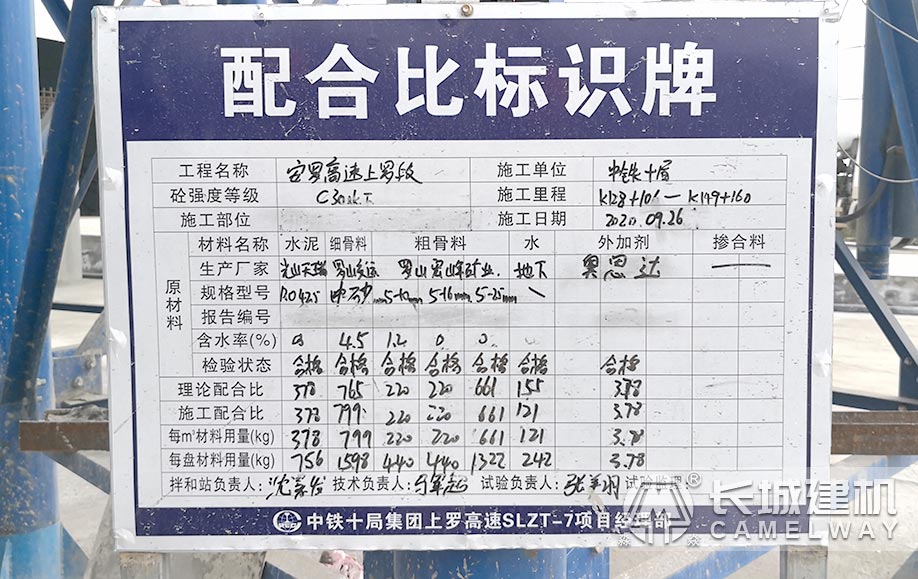 配合比标识牌
工程名称 安罗高速上罗段 施工单位 中铁十局
砼强度等级 C30 施工里程 K128+106—K149+160
施工部位 施工日期 2020.09.26
原材料
材料名称 水泥 细骨料 粗骨料 水 外加剂 掺合料
生产厂家 光山天瑞 罗山 罗山 矿业 地下 奥思达 —
规格型号 P.O42.5 中砂 5-10mm 5-16mm 5-25mm \
报告编号
含水率(%) 0 4.5 1.2 0 0
检验状态 合格 合格 合格 合格 合格 合格 合格
理论配合比 378 765 220 220 661 155 3.78
施工配合比 378 799 220 220 661 121 3.78
每m³材料用量(kg) 378 799 220 220 661 121 3.78
每盘材料用量(kg) 756 1598 440 440 1322 242 3.78
拌和站负责人: 技术负责人: 试验负责人: 试验监理
中铁十局集团上罗高速SLZT-7项目经理部
® 长城建机
CAMELWAY